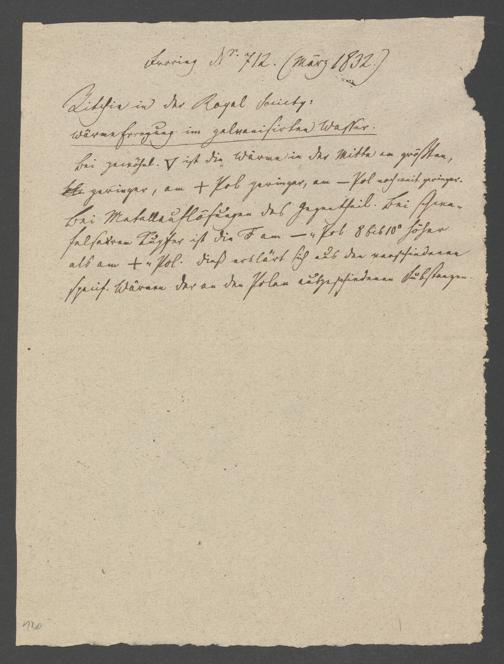 Froriep Nr. 712. (März 1832.)
Ritchie in der Royal Society:
Wärmeerregung im galvanisirten Wasser.
Bei gewöhnl. ∇ ist die Wärme in der Mitte am größten,
geringer, am + Pol geringer, am – Pol noch weit geringer.
Bei Metallauflösungen das Gegentheil. Bei schwe-
felsaurem Kupfer ist die am – Pol 8 bis 10° höher
als am + Pol. Dieß erklärt sich aus den verschiedenen
specif. Wärmen der an den Polen ausgeschiedenen Substanzen.